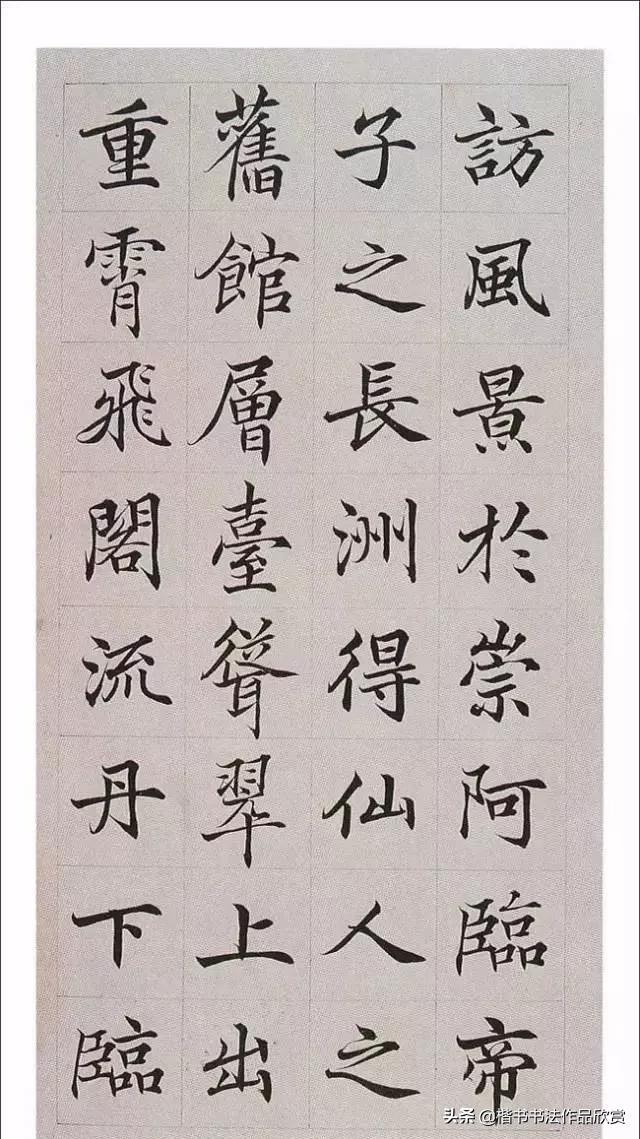 訪風景於崇阿臨帝
子之長洲得仙人之
舊館層臺聳翠上出
重霄飛閣流丹下臨
头条@楷书书法作品欣赏